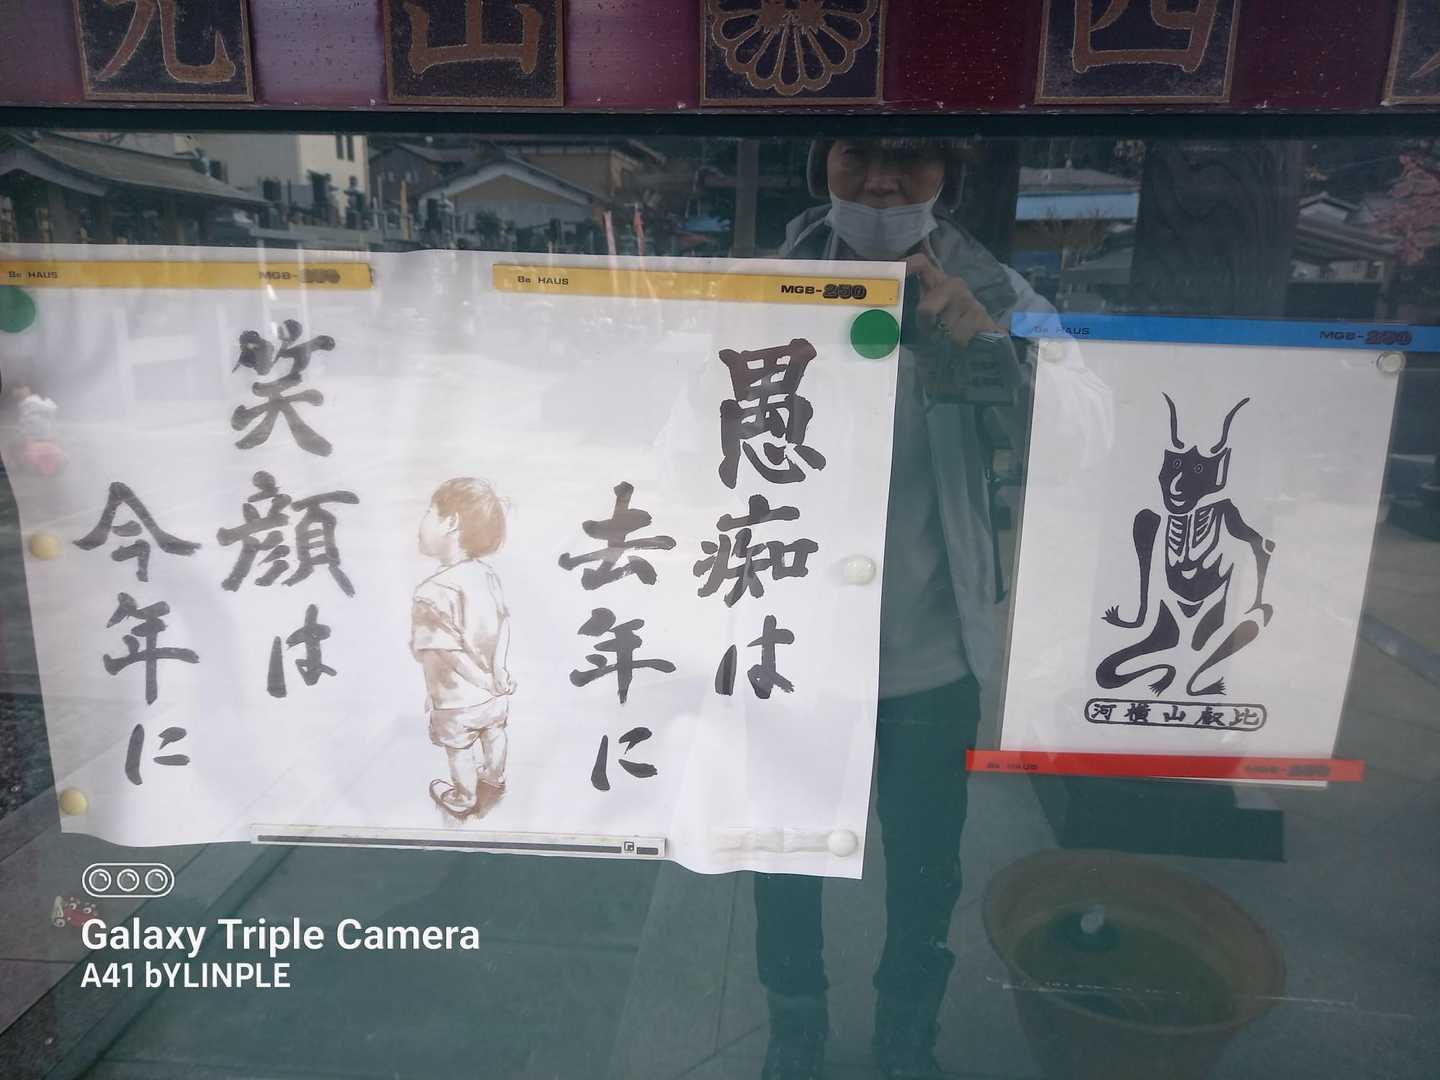 光山西
Be HAUS MGB-250
Be HAUS MGB-250
愚痴は
去年に
笑顔は
今年に
Be HAUS MGB-250
河横山叡比
Be HAUS MGB-250
Galaxy Triple Camera
A41 bYLINPLE